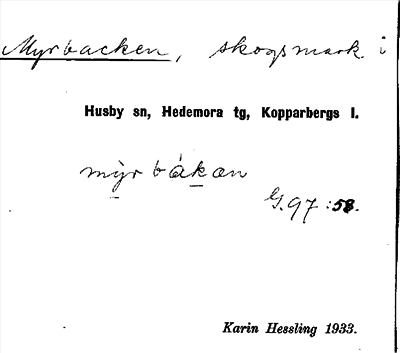 Myrbacken, skogsmark i
Husby sn, Hedemora tg, Kopparbergs l.
mỳr bàkan
G. 97 : 58.
Karin Hessling 1933.